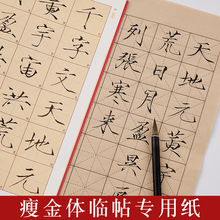 千字文天地元
黄宇宙洪荒
天地元黄宇
荒日月盈昃
列張寒来
瘦金体临帖专用纸